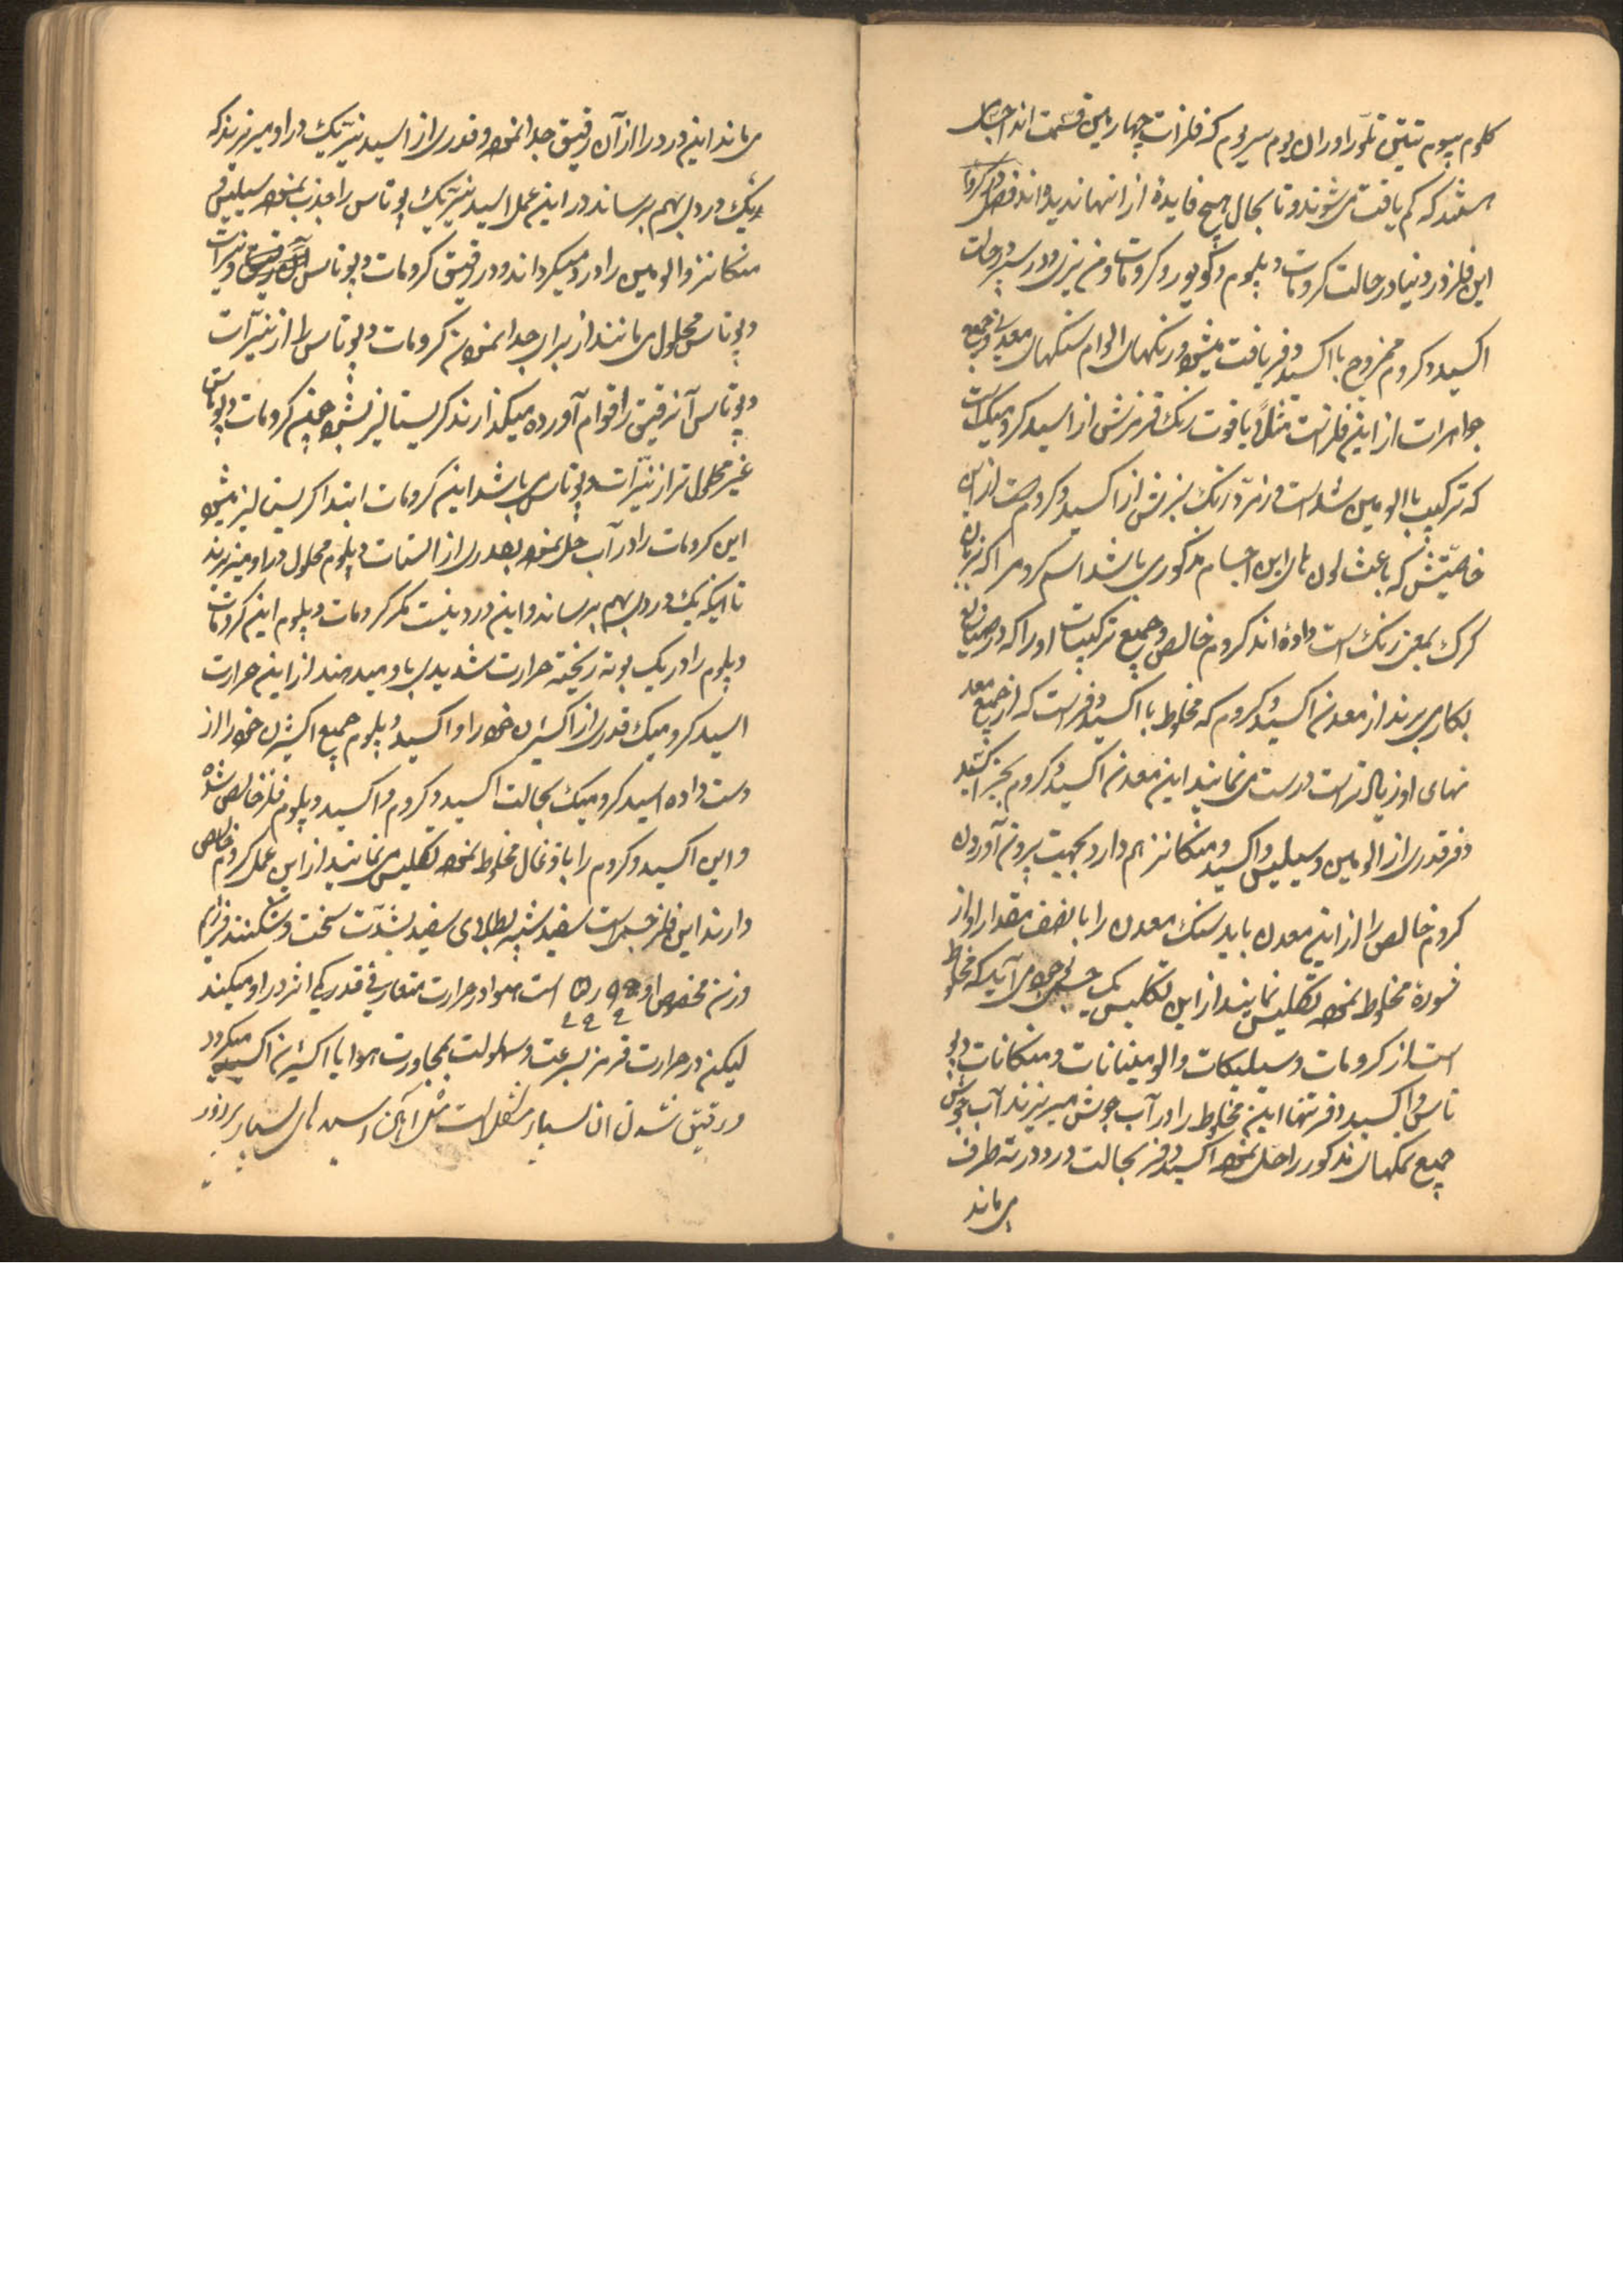 کلوم بیوم تیتن تلّور اوران یوم سیریوم که فلزات چهارمین قسمت اند اجسامی
هستند که کم یافت می‌شوند و تا بحال هیچ فایدهٔ از انها ندیده‌اند فصل در کروم
این فلز در دنیا در حالت کرومات دپلوم و کویور و کرومات و منیزی و در سپر درجات
اکسید دکروم ممزوج با اکسید دفر یافت میشود و رنکهای الوام سنکهای معدنی و جمیع
جواهرات از این فلز است مثلاً یاقوت رنک قرمزش از اسید کرومیک است
که ترکیب با الومین شده است و زمرّد رنک سبزش از اکسید دکروم است از این
خاصیّتش که باعث لون های این اجسام مذکور می باشد اسم کروم را که بزبان
کرک بمعنی رنک است داده‌اند کروم خالص و جمیع ترکیبات او را که در صنایع
بکار می برند از معدن اکسید دکروم که مخلوط با اکسید دفر است که از جمیع معد
نهای او زیاد تر است درست می نمایند این معدن اکسید دکروم بجز اکسید
دفر قدری از الومین و سیلیس و اکسید منکانز هم دارد بجهت بیرون آوردن
کروم خالص را از این معدن باید سنک معدن را با نصف مقدار او از
شوره مخلوط نموده تکلیس نمایند از این تکلیس یک جسمی بوجود می آید که مخلوط
است از کرومات و سیلیکات و الومینانات و منکانات دپو
تاس و اکسید دفر تنها این مخلوط را در آب جوش میریزند آب جوش
جمیع نمکهای مذکور را حل نموده اکسید دفر بحالت درد در ته ظرف
می ماند
می ماند این درد را از آن رقیق جدا نموده و قدری از اسید نیتریک در او میریزند که
یک دردی بهم برساند در این عمل اسید نیتریک پوتاس را جذب نموده سیلیس
منکانز و الومین را درد میکرداند و در رقیق کرومات دپوتاس و نیترات
دپوتاس محلول می مانند از برای جدا نمودن کرومات دپوتاس را از نیترات
دپوتاس آنرقیق را قوام آورده میکذارند کریستالیز بشود چون کرومات دپوتاس
غیر محلول تر از نیترات دپوتاس می باشد این کرومات ابتدا کریستالیز میشود
این کرومات را در آب حل نموده بقدری از استات دپلوم محلول در او میریزند
تا اینکه یک دردی بهم برساند و این درد نیست مکر کرومات دپلوم این کرومات
دپلوم را در یک بوته ریخته حرارت شدیدی باو میدهند از این حرارت
اسید کرومیک قدری از اکسژن خود را و اکسید دپلوم جمیع اکسژن خود را از
دست داده اسید کرومیک بحالت اکسید دکروم و اکسید دپلوم فلز خالص شده
و این اکسید دکروم را با ذغال مخلوط نموده تکلیس می نمایند از این عمل کروم خالص
دارند این فلز جسم است سفید شبیه بطلای سفید بشدّت سخت و شکننده
وزن مخصوص او ۵٫۹۰ است هوا در حرارت متعارفی قدر کمی اثر در او میکند
لیکن در حرارت قرمز بسرعت و سهولت بمجاورت هوا یا اکسژن اکسید میکردد
و رقیق شدن ان بسیار مشکل است مثل آهن اسیدهای بسیار پر زور